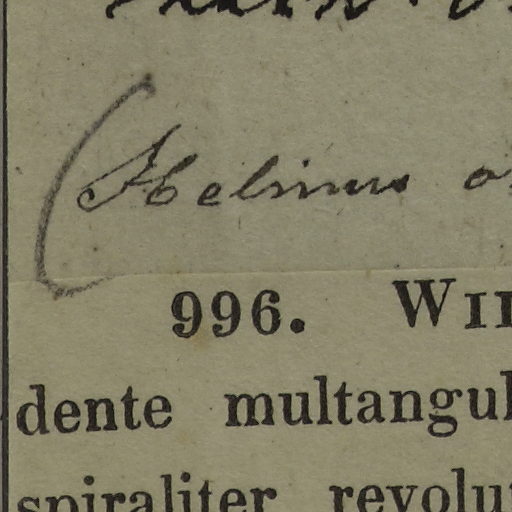 (Helinus o
996. WII
dente multangul
spiraliter revolu